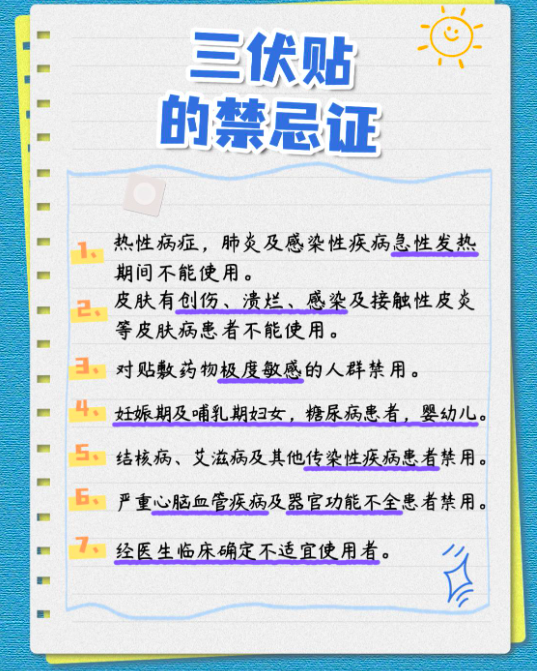 三伏贴
的禁忌证
1、热性病症，肺炎及感染性疾病急性发热
期间不能使用。
2、皮肤有创伤、溃烂、感染及接触性皮炎
等皮肤病患者不能使用。
3、对贴敷药物极度敏感的人群禁用。
4、妊娠期及哺乳期妇女，糖尿病患者，婴幼儿。
5、结核病、艾滋病及其他传染性疾病患者禁用。
6、严重心脑血管疾病及器官功能不全患者禁用。
7、经医生临床确定不适宜使用者。